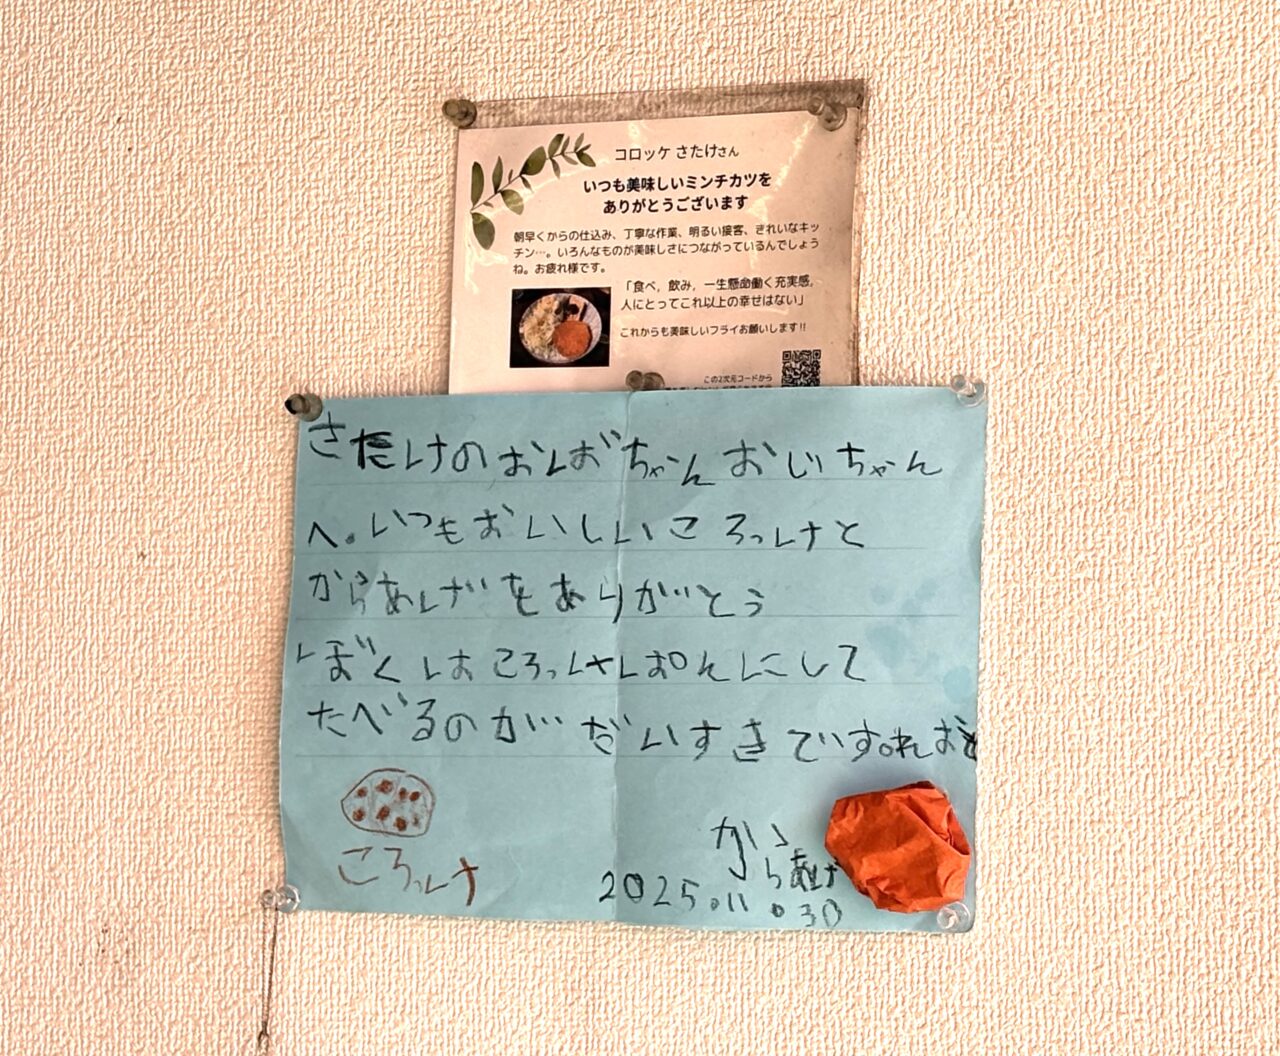 コロッケ さたけさん
いつも美味しいミンチカツを
ありがとうございます
朝早くからの仕込み、丁寧な作業、明るい接客、きれいなキッ
チン…。いろんなものが美味しさにつながっているんでしょう
ね。お疲れ様です。
「食べ，飲み，一生懸命働く充実感。
人にとってこれ以上の幸せはない」
これからも美味しいフライお願いします!!
この2次元コードから
さたけのおばちゃんおじちゃん
へ。いつもおいしいころっけと
からあげをありがとう
ぼくはころっけぱんにして
たべるのがだいすきです。
ころっけ
からあげ
2025.11.30